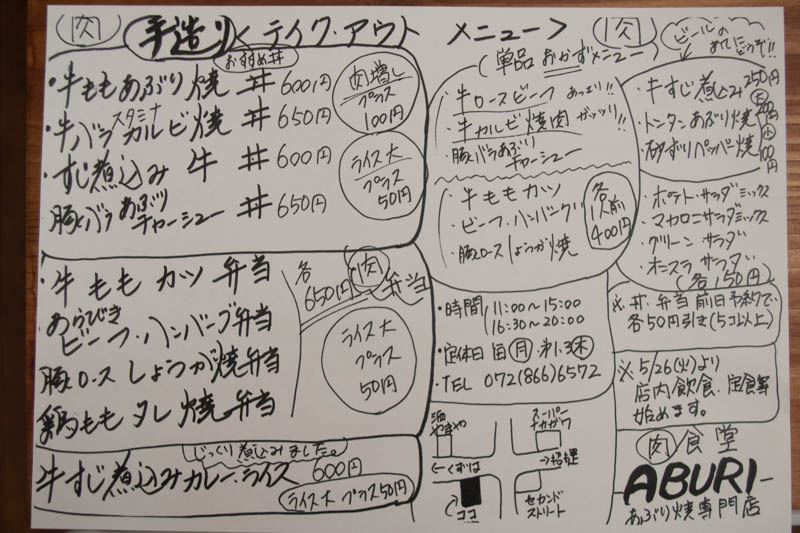 肉 手造り<テイク・アウト メニュー> 肉
おすすめ丼
・牛ももあぶり焼 丼 600円
スタミナ
・牛バラカルビ焼 丼 650円
・すじ煮込み 牛 丼 600円
・豚バラあぶりチャーシュー 丼 650円
肉増し
プラス
100円
ライス大
プラス
50円
・牛ももカツ弁当
あらびき
・ビーフ・ハンバーグ弁当
・豚ロースしょうが焼弁当
・鶏ももタレ焼弁当
各650円
肉弁当
ライス大
プラス
50円
じっくり煮込みました。
牛すじ煮込みカレーライス 600円
ライス大 プラス50円
(単品おかずメニュー)
・牛ロースビーフ あっさり!!
・牛カルビ焼肉 ガッツリ!!
・豚バラあぶりチャーシュー
・牛ももカツ
・ビーフ・ハンバーグ
・豚ロースしょうが焼
各1人前
400円
ビールの
あてにどうぞ!!
・牛すじ煮込み 250円
・トンタンあぶり焼
・砂ずりペッパー焼
小100円
・ポテト・サラダミックス
・マカロニサラダミックス
・グリーン サラダ
・オニスラ サラダ
(各150円)
・時間 11:00~15:00
16:30~20:00
・定休日 毎月 第1.3木
・TEL 072(866)6572
※丼・弁当 前日予約で、
各50円引き(5コ以上)
※5/26(火)より
店内飲食、定食等
始めます。
酒
やまや
スーパー
ナカガワ
←くずは
→招提
ココ
セカンド
ストリート
肉食堂
ABURI
あぶり焼専門店